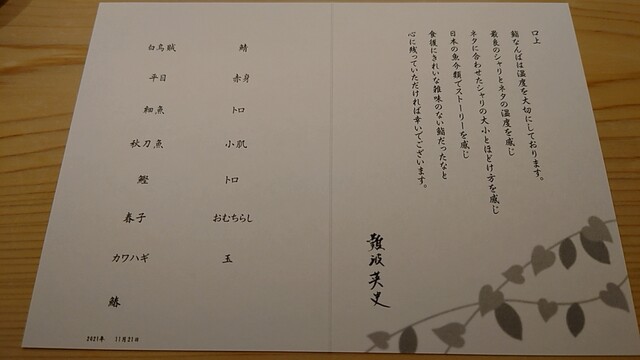 口上
鮨なんばは温度を大切にしております。
最良のシャリとネタの温度を感じ
ネタに合わせたシャリの大小とほどけ方を感じ
日本の魚介類でストーリーを感じ
食後にきれいな雑味のない鮨だったなと
心に残っていただければ幸いでございます。
難波英史
白烏賊
平目
細魚
秋刀魚
鰹
春子
カワハギ
鰆
鯖
赤身
トロ
小肌
トロ
おむちらし
玉
2021年 11月21日